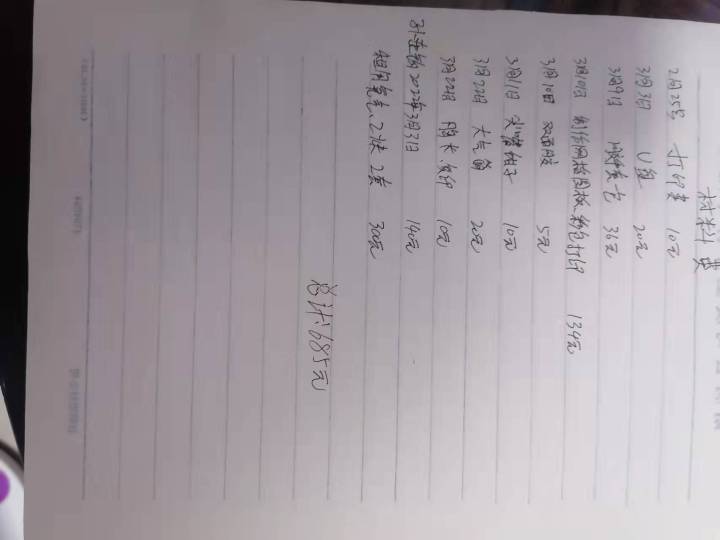 材料费
2月25号 打印费 10元
3月3日 U盘 20元
3月9日 36元
3月10日 制作网格图板 打印 134元
3月10日 双面胶 5元
3月11日 钳子 10元
3月22日 大气筒 20元
3月22日 胶水 复印 10元
2022年3月31日 140元
租用 2套 300元
总计685元